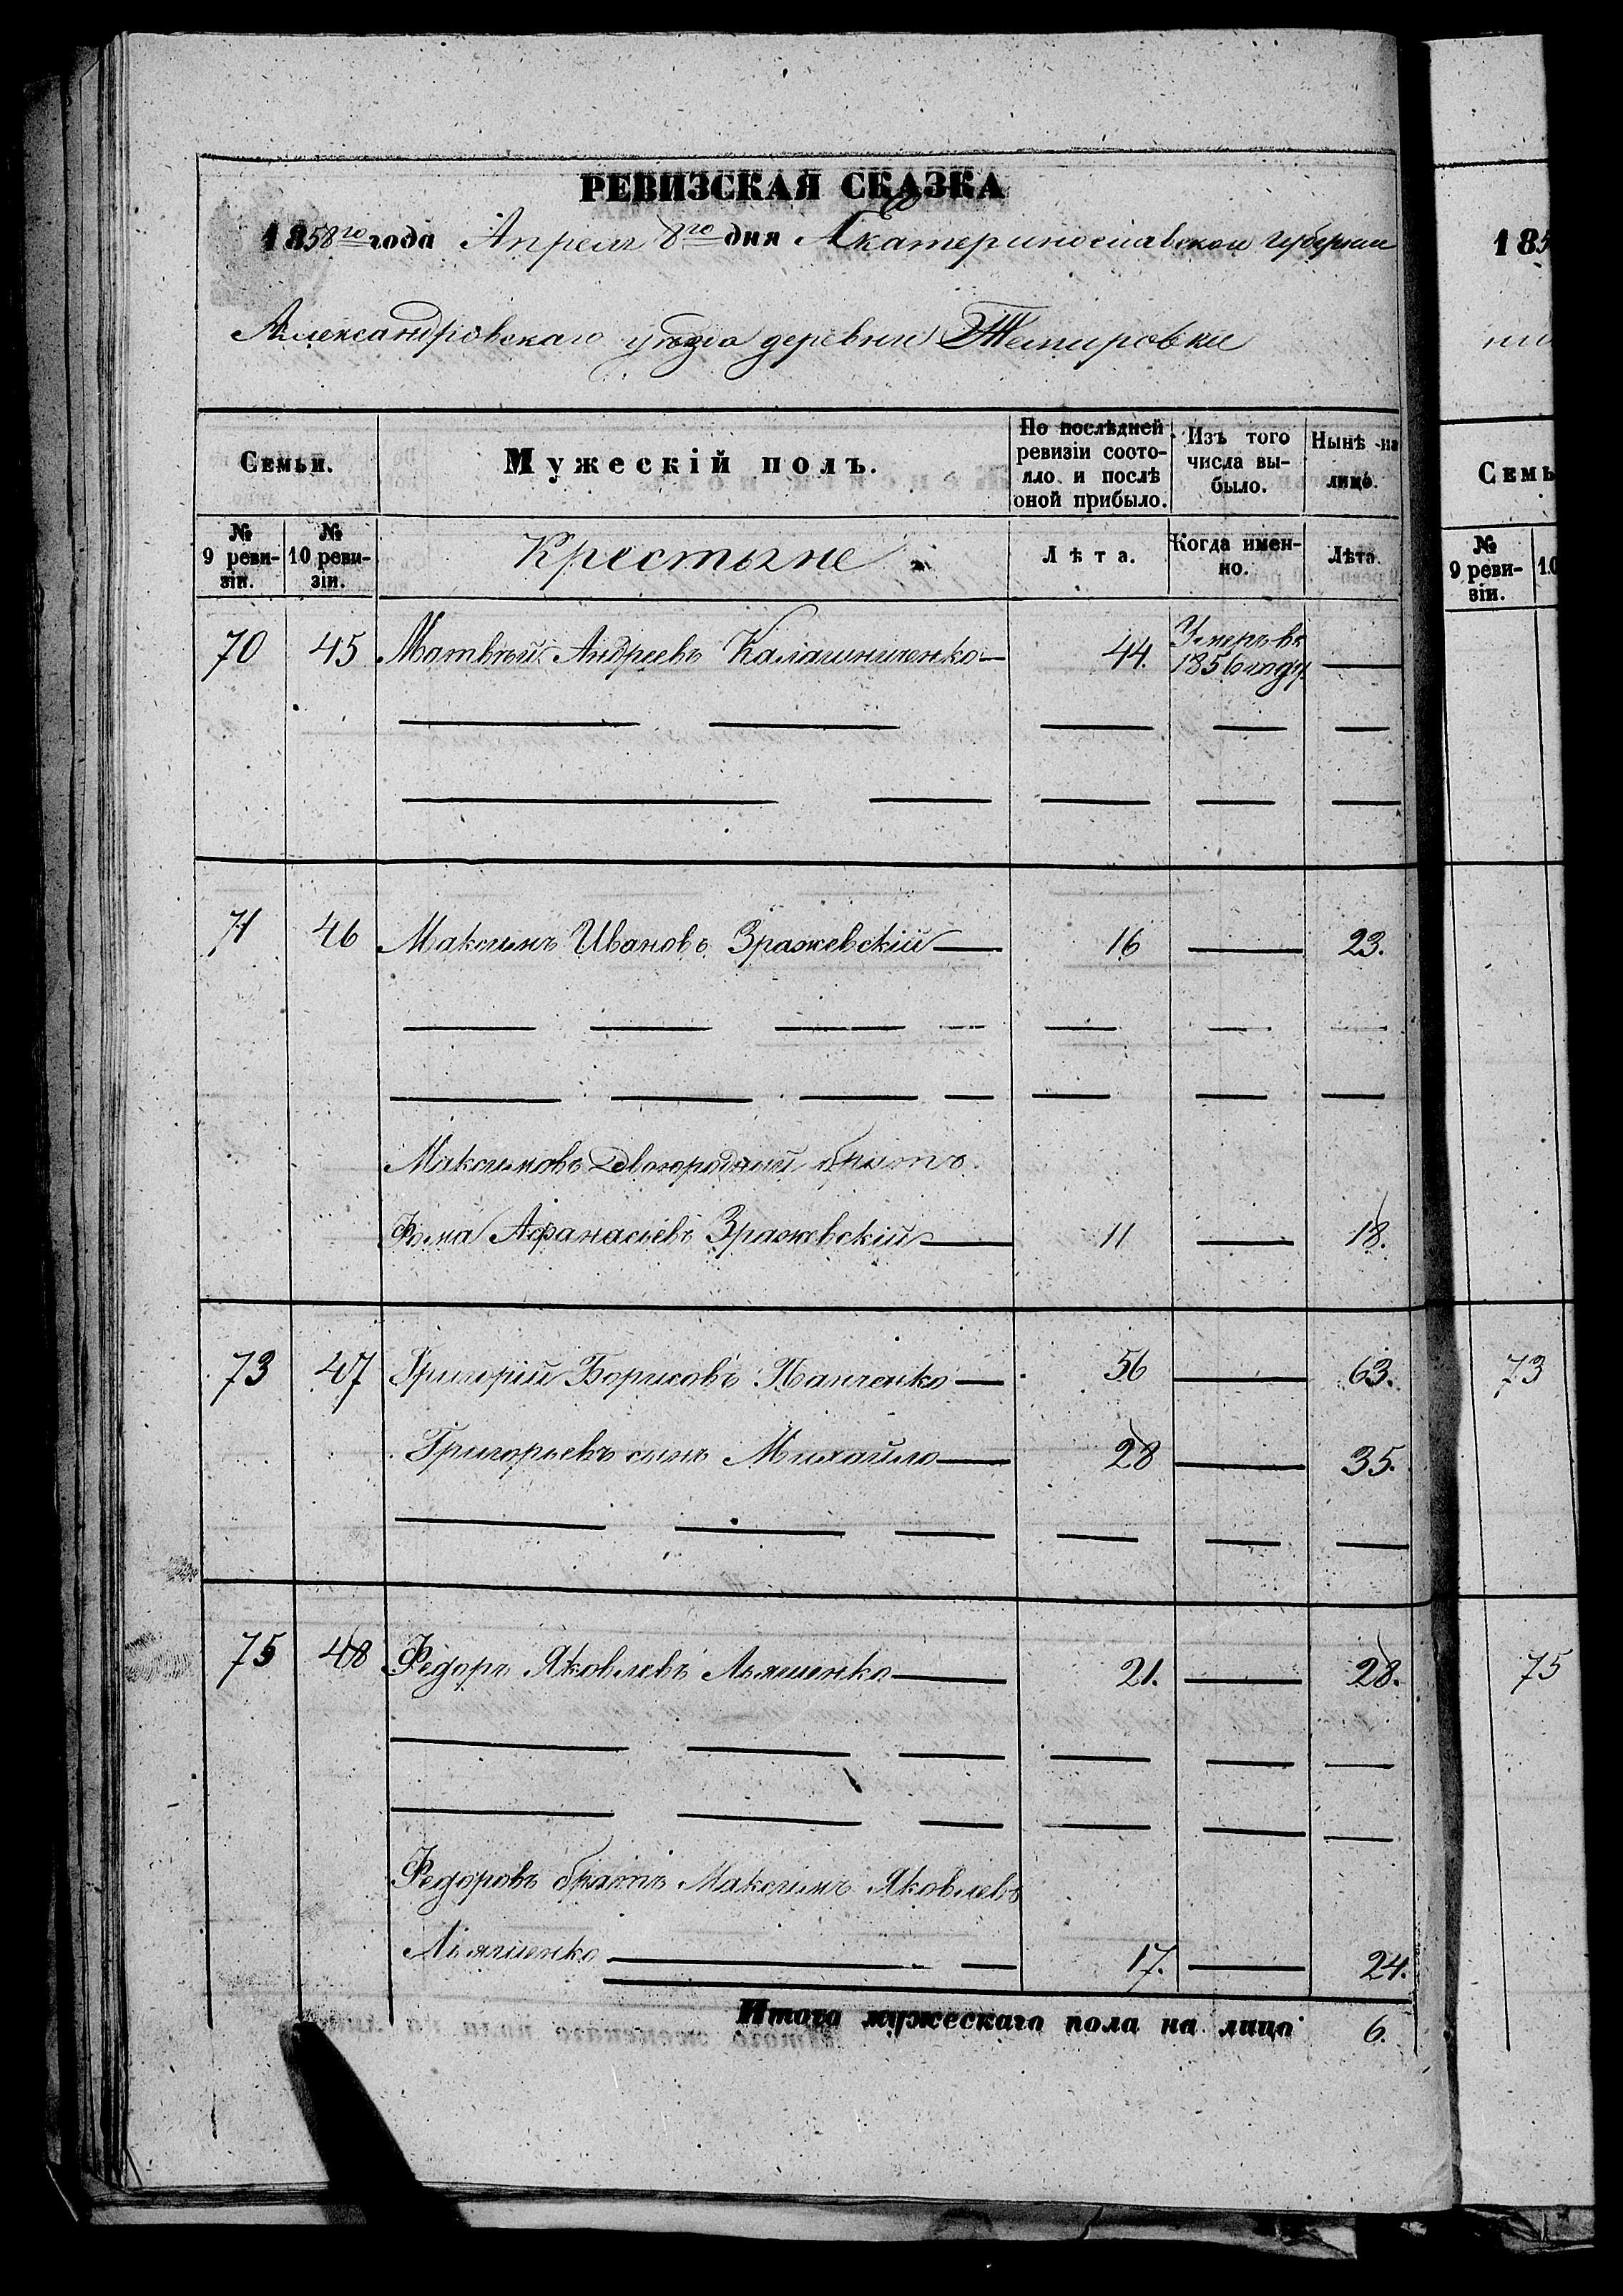 РЕВИЗСКАЯ СКАЗКА
1858го года Апреля 8го дня Екатеринославской губернии
Александровскаго уѣзда деревни Темировки
Семьи.
Мужескій полъ.
По послѣдней ревизіи состояло и послѣ оной прибыло.
Изъ того числа выбыло.
Нынѣ на лицо.
№ 9 ревизіи.
№ 10 ревизіи.
Крестьяне
Лѣта.
Когда именно.
Лѣта.
70 45 Матвѣй Андреевъ Калашниченко — 44. Умеръ въ 1856 году. —
71 46 Максимъ Ивановъ Зражевскій — 16 — 23.
Максимовъ двоюродный братъ
Фома Афанасіевъ Зражевскій — 11 — 18.
73 47 Григорій Борисовъ Панченко — 56 — 63.
Григорьевъ сынъ Михайло — 28 — 35.
75 48 Федоръ Яковлевъ Ляшенко — 21. — 28.
Федоровъ братъ Максимъ Яковлевъ
Ляшенко — 17. — 24.
Итого мужескаго пола на лицо 6.
185
Семь
№ 9 ревизіи.
10
73
75